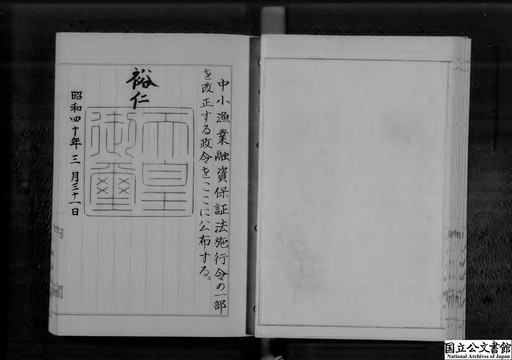 中小漁業融資保証法施行令の一部
を改正する政令をここに公布する。
裕仁
天皇
御璽
昭和四十年三月三十一日
国立公文書館
National Archives of Japan